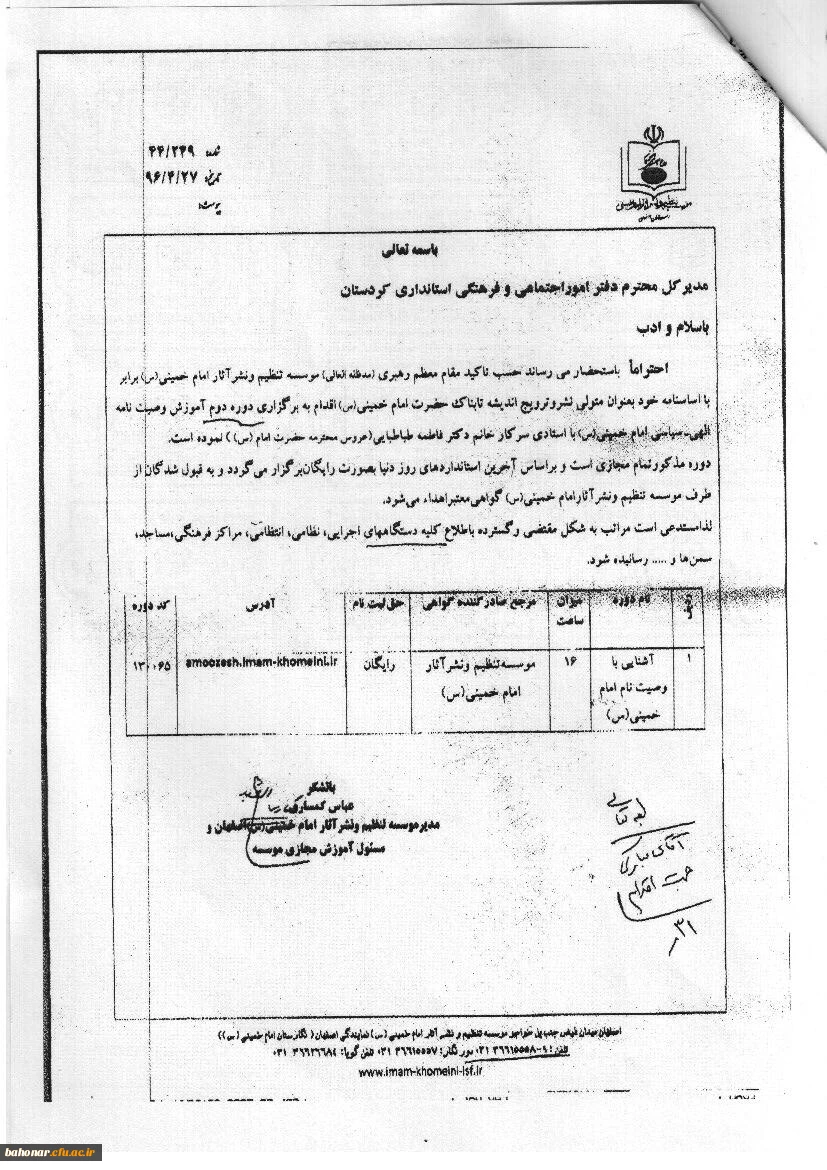 شماره: ۴۴/۲۴۹
تاریخ: ۹۶/۴/۲۷
پیوست:
باسمه تعالی
مدیر کل محترم دفتر امور اجتماعی و فرهنگی استانداری کردستان
باسلام و ادب
احتراماً باستحضار می رساند حسب تاکید مقام معظم رهبری (مدظله العالی) موسسه تنظیم ونشر آثار امام خمینی(س) برابر
با اساسنامه خود بعنوان متولی نشروترویج اندیشه تابناک حضرت امام خمینی(س) اقدام به برگزاری دوره دوم آموزش وصیت نامه
الهی-سیاسی امام خمینی(س) با استادی سرکار خانم دکتر فاطمه طباطبایی(عروس محترمه حضرت امام(س)) نموده است.
دوره مذکورتمام مجازی است و براساس آخرین استانداردهای روز دنیا بصورت رایگان‌برگزار می‌گردد و به قبول شدگان از
طرف موسسه تنظیم ونشرآثارامام خمینی(س) گواهی معتبراهداء می‌شود.
لذامستدعی است مراتب به شکل مقتضی وگسترده باطلاع کلیه دستگاههای اجرایی، نظامی، انتظامی، مراکز فرهنگی،مساجد،
سمن‌ها و ..... رسانیده شود.
ردیف نام دوره میزان ساعت مرجع صادرکننده گواهی حق ثبت نام آدرس کد دوره
۱ آشنایی با وصیت نام امام خمینی(س) ۱۶ موسسه تنظیم ونشر آثار امام خمینی(س) رایگان amoozesh.imam-khomeini.ir ۱۳۰۰۶۵
باتشکر
عباس کمساری
مدیرموسسه تنظیم ونشر آثار امام خمینی(س)اصفهان و
مسئول آموزش مجازی موسسه
آقای
جهت اقدام
۳۱
اصفهان میدان فیض جنب پل خواجو موسسه تنظیم و نشر آثار امام خمینی (س) نمایندگی اصفهان ( نگارستان امام خمینی (س))
تلفن: ۹-۳۶۶۱۵۵۵۸ ۰۳۱ دورنگار: ۳۶۶۱۵۵۵۷ ۰۳۱ تلفن گویا: ۳۶۶۲۶۶۸۴ ۰۳۱
www.imam-khomeini-isf.ir
bahonar.cfu.ac.ir